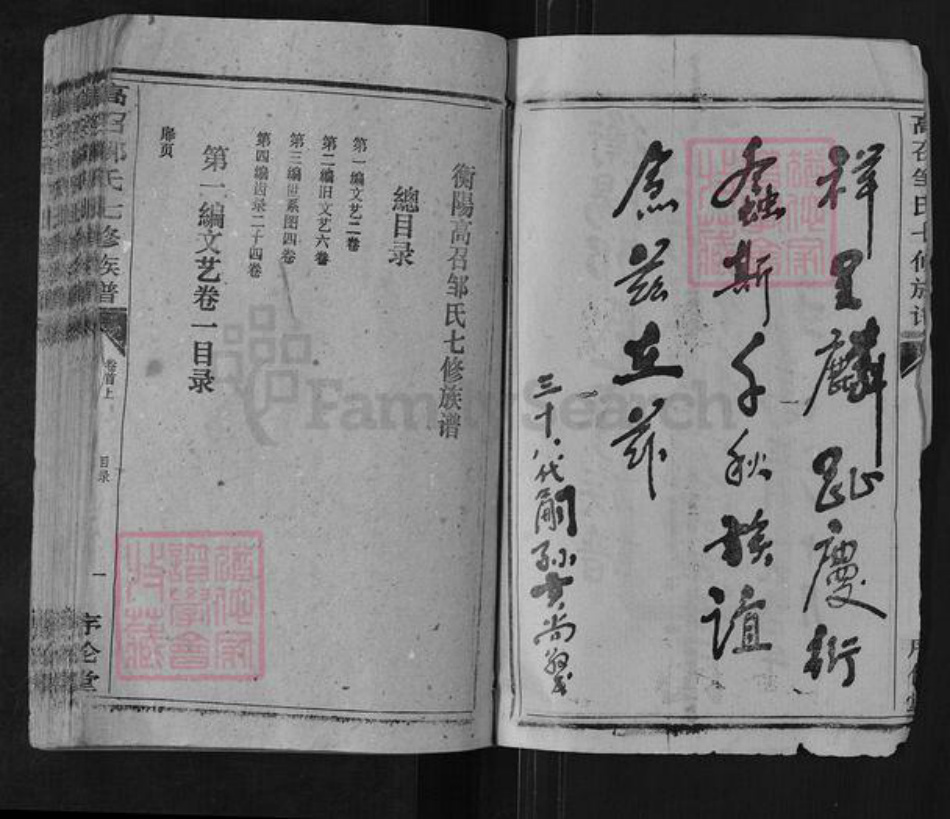 祥呈麟趾慶衍
螽斯千秋族誼
念兹在兹
三十八代嗣孙
衡陽高召邹氏七修族谱
總目录
第一编文艺二卷
第二编旧文艺六卷
第三编世系图四卷
第四编齿录二十四卷
第一编文艺卷一目录
扉页
高召邹氏七修族谱
卷首上
目录
一
序伦堂
FamilySearch